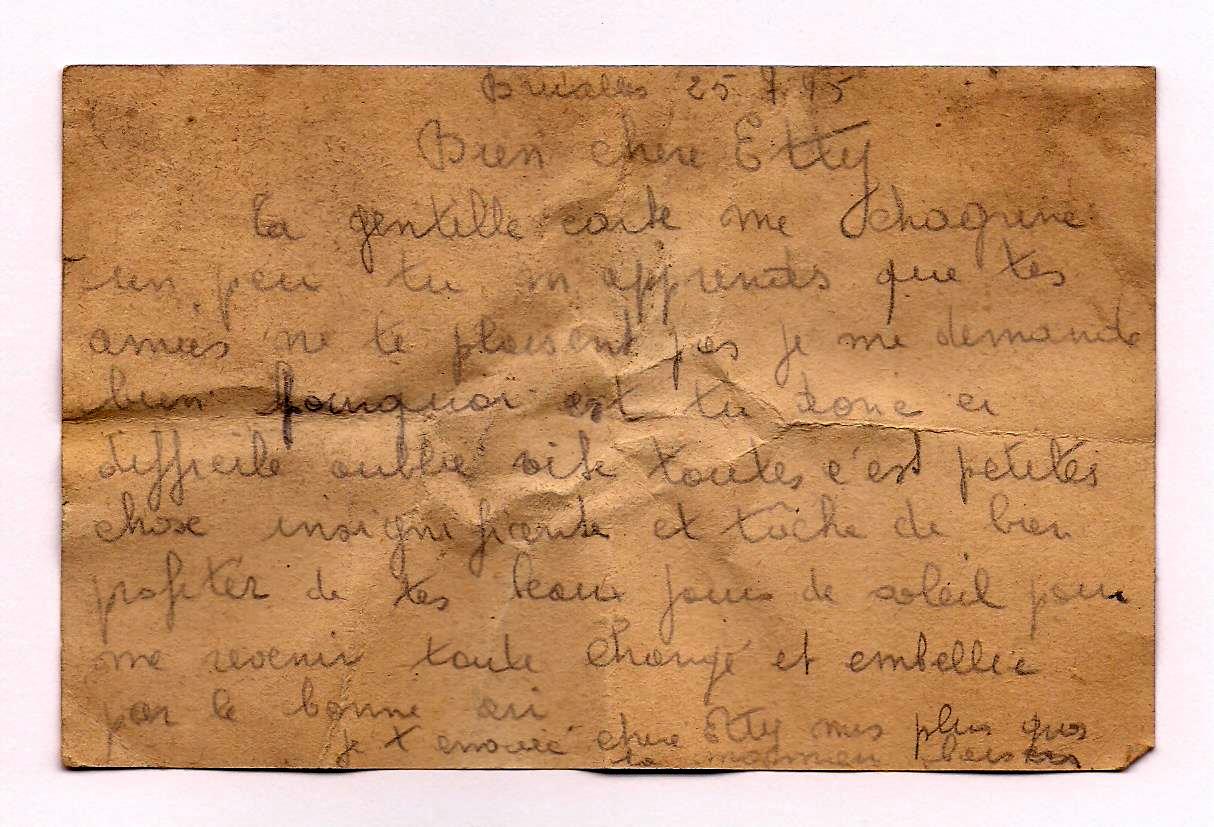 Bruxelles 25 7 45
Bien chere Etty
Ta gentille carte me chagrine
un peu tu m'apprends que tes
amies ne te plaisent pas je me demande
bien pourquoi est tu donc ci
difficile oublie vite toutes c'est petites
chose insignifiante et tâche de bien
profiter de tes beaux jours de soleil pour
me revenir toute changé et embellie
par le bonne air
je t envoie chere Etty mes plus gros
ta maman baisers